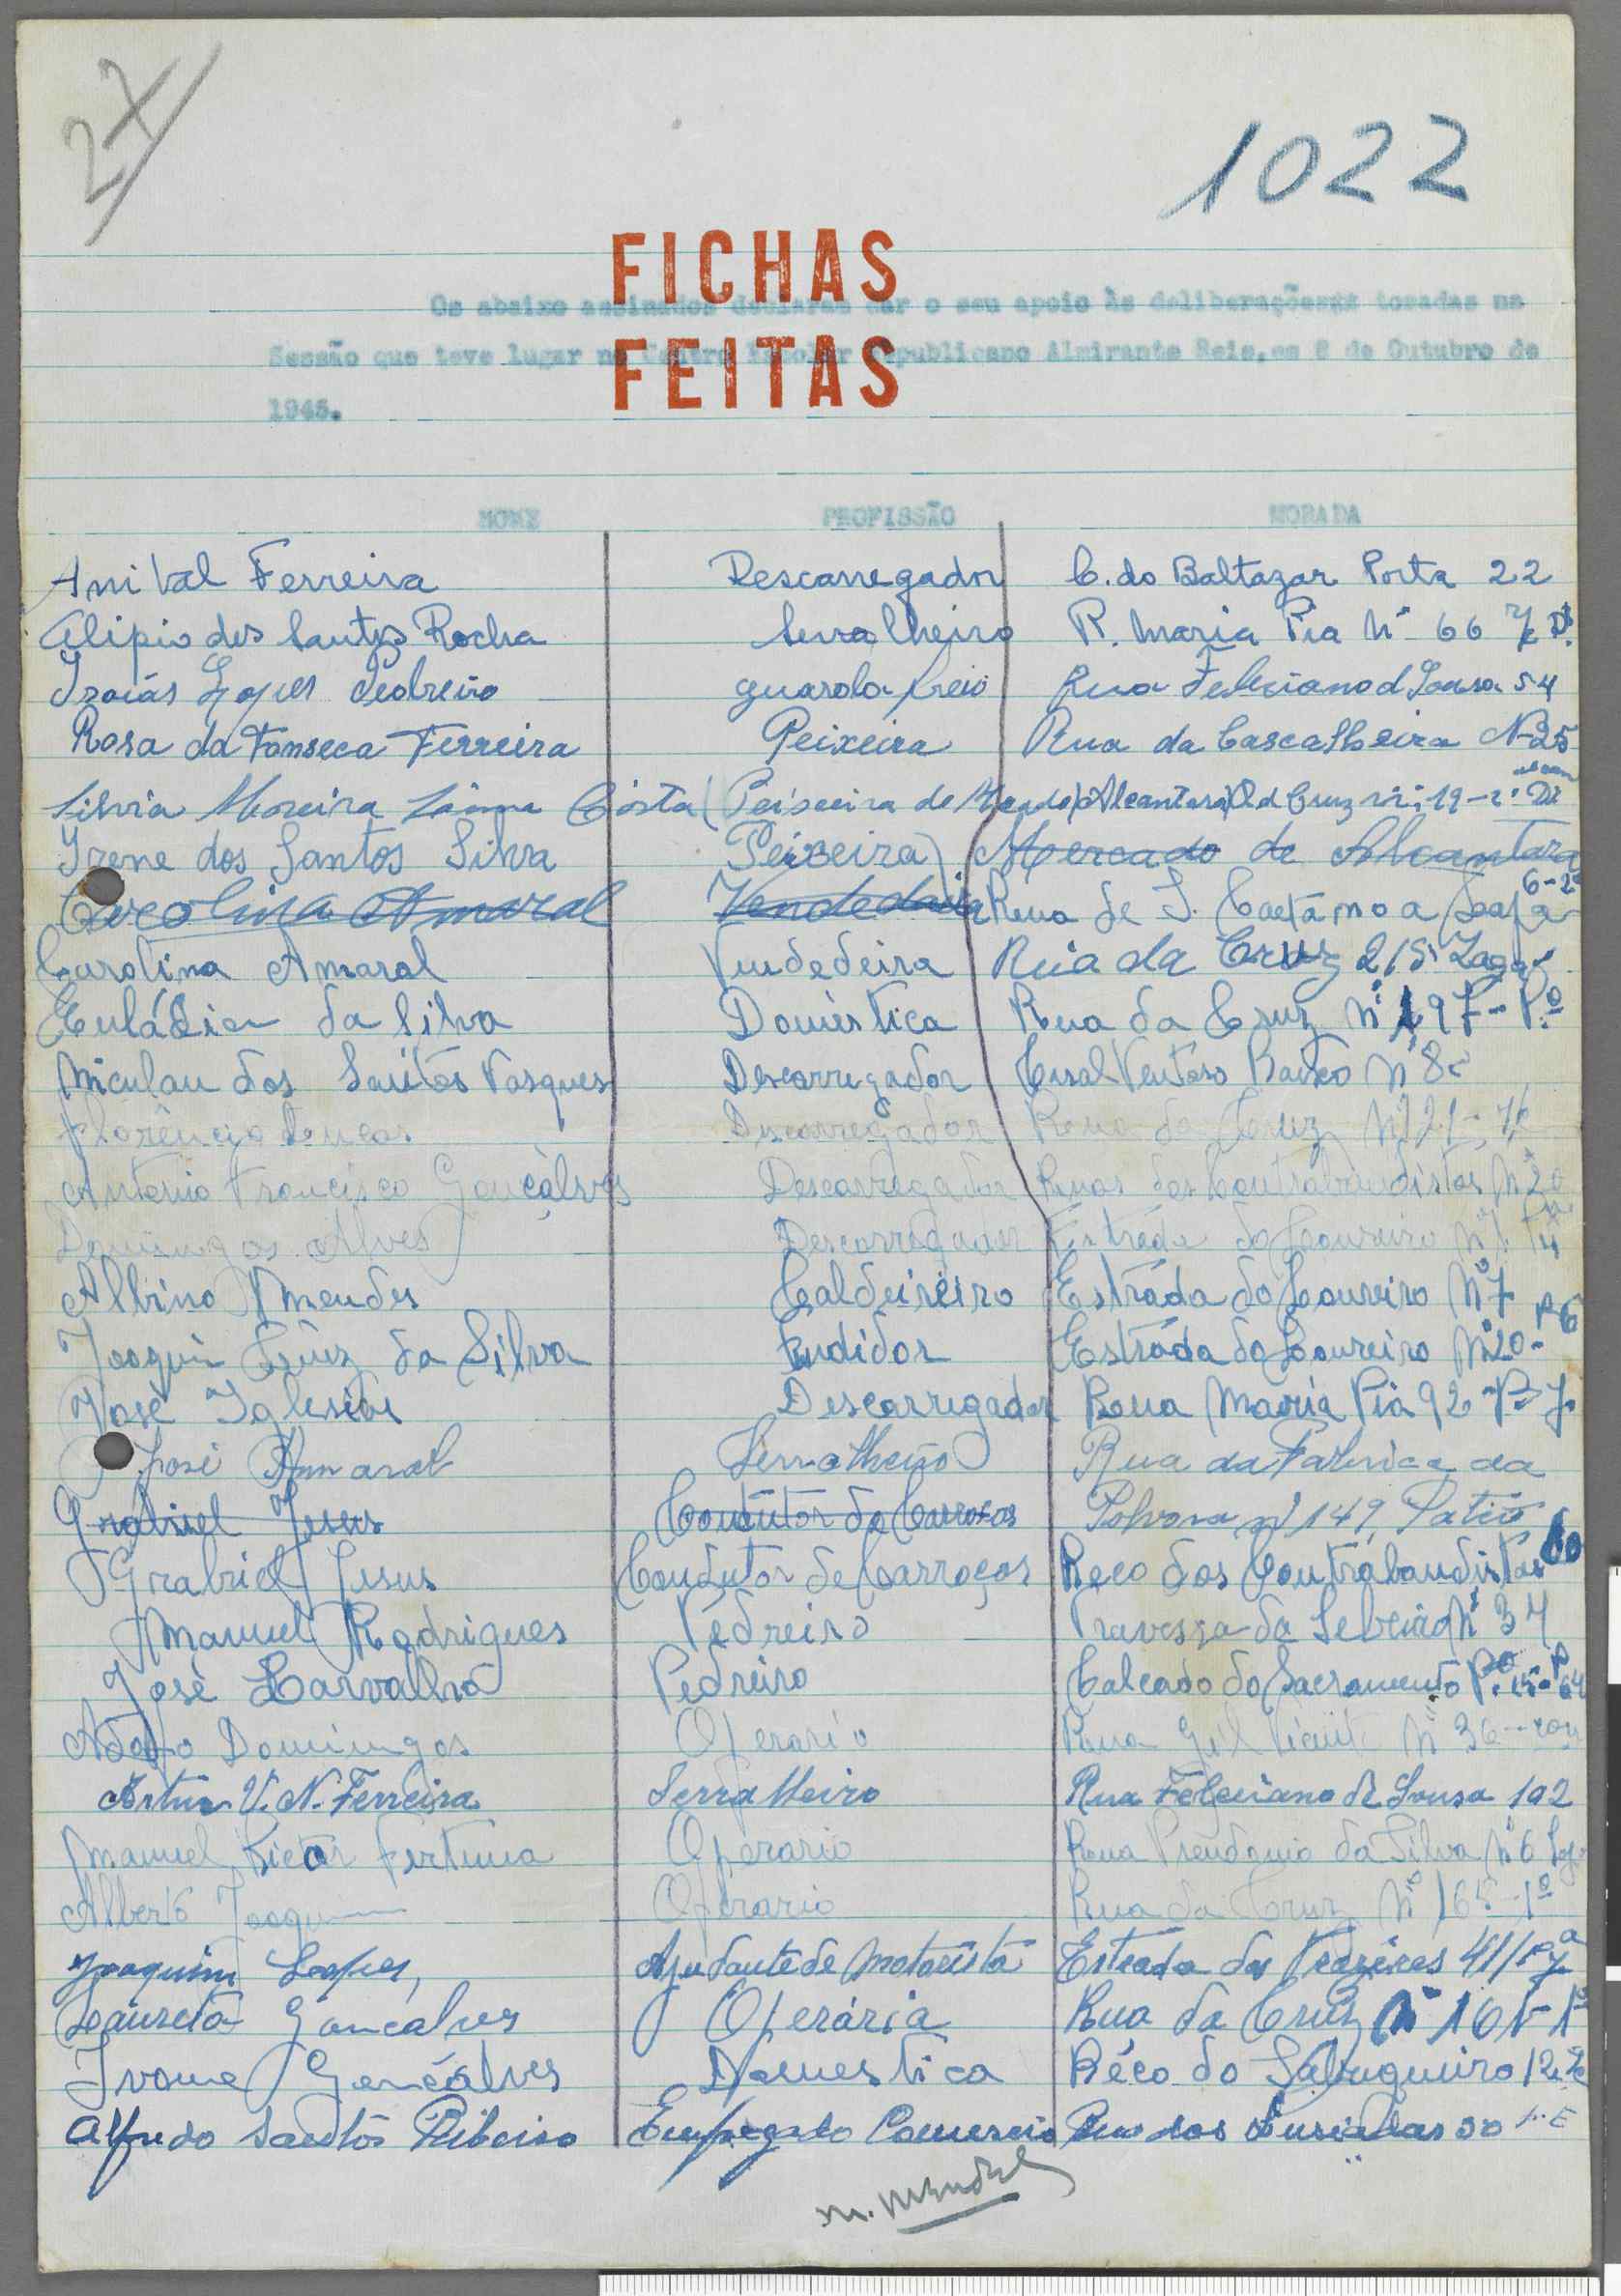 27
1022
FICHAS
FEITAS
Os abaixo assinados declaram dar o seu apoio às deliberações tomadas na
Sessão que teve lugar no Centro Escolar Republicano Almirante Reis, em 8 de Outubro de
1945.
NOME PROFISSÃO MORADA
Anibal Ferreira Descarregador C. do Baltazar Porta 22
Alipio dos Santos Rocha Serralheiro R. Maria Pia Nº 66
Izaiás Lopes Pedreiro guarda freio Rua Feliciano d Sousa 54
Rosa da Fonseca Ferreira Peixeira Rua da Cascalheira Nº 25
Silvia Moreira Costa (Peixeira de Alcantara) Cruz 19
Irene dos Santos Silva Peixeira) Mercado de Alcantara
Carolina Amaral Vendedeira Rua de S. Caetano a Lapa 6-2º
Carolina Amaral Vendedeira Rua da Cruz
Eulália da Silva Doméstica Rua da Cruz nº 197-
Niculau dos Santos Vasques Descarregador Casal Ventoso Baixo Nº 8
Florêncio Descarregador Rua da Cruz Nº 121-
Antonio Francisco Gonçàlves Descarregador Ruas dos Contrabandistas Nº 20
Domingos Alves Descarregador Estrada do Loureiro Nº
Albino Mendes Caldeireiro Estráda do Loureiro Nº 7
Joaquin Cruz da Silva Fudidor Estráda do Loureiro Nº 20- P 6
José Iglesias Descarregador Rua Maria Pia 92
José Amaral Serralheiro Rua da Fabrica da
Grabriel Jesus Condutor de Carroças Polvora nº 149, Patio
Grabriel Jesus Condutor de Carroços Beco dos Contrabandistas
Manuel Rodrigues Pedreiro Travessa da Nº 34
José Carvalho Pedreiro Calçada do Sacramento
Adolfo Domingos Operario Rua Gil Vicente Nº 36
Artur V. N. Ferreira Serralheiro Rua Feleciano de Sousa 102
Manuel Victor Fertuna Operario Rua da Silva Nº 6
Alberto Joaquim Operario Rua da Cruz Nº 165-1º
Joaquim Lopes, Ajudante de Motorista Estrada dos Prazeres 41
Laureta Goncalves Operária Rua da Cruz Nº 161-
Ivone Gonçálves Domestica Béco do Sabugueiro 12
Alfredo Santos Ribeiro Empregado Comercio Rua dos Lusiadas 50
M. Mendes